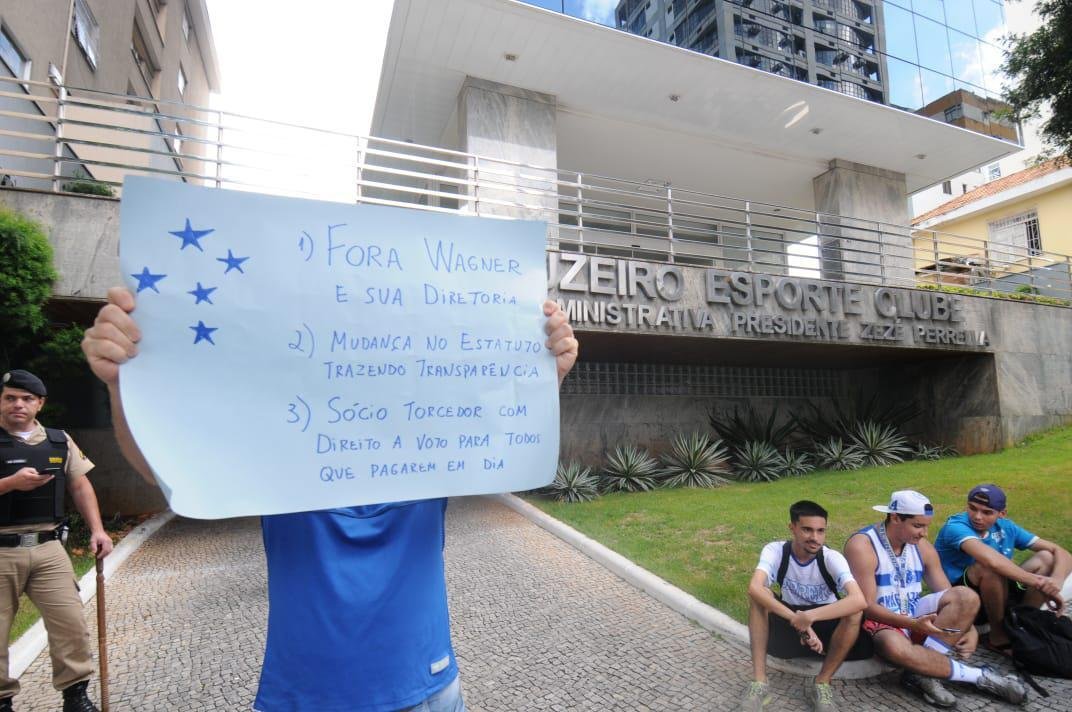 1) FORA WAGNER
E SUA DIRETORIA
2) MUDANÇA NO ESTATUTO
TRAZENDO TRANSPARÊNCIA
3) SÓCIO TORCEDOR COM
DIREITO A VOTO PARA TODOS
QUE PAGAREM EM DIA
UZEIRO ESPORTE CLUBE
MINISTRATIVA PRESIDENTE ZEZÉ PERRELLA